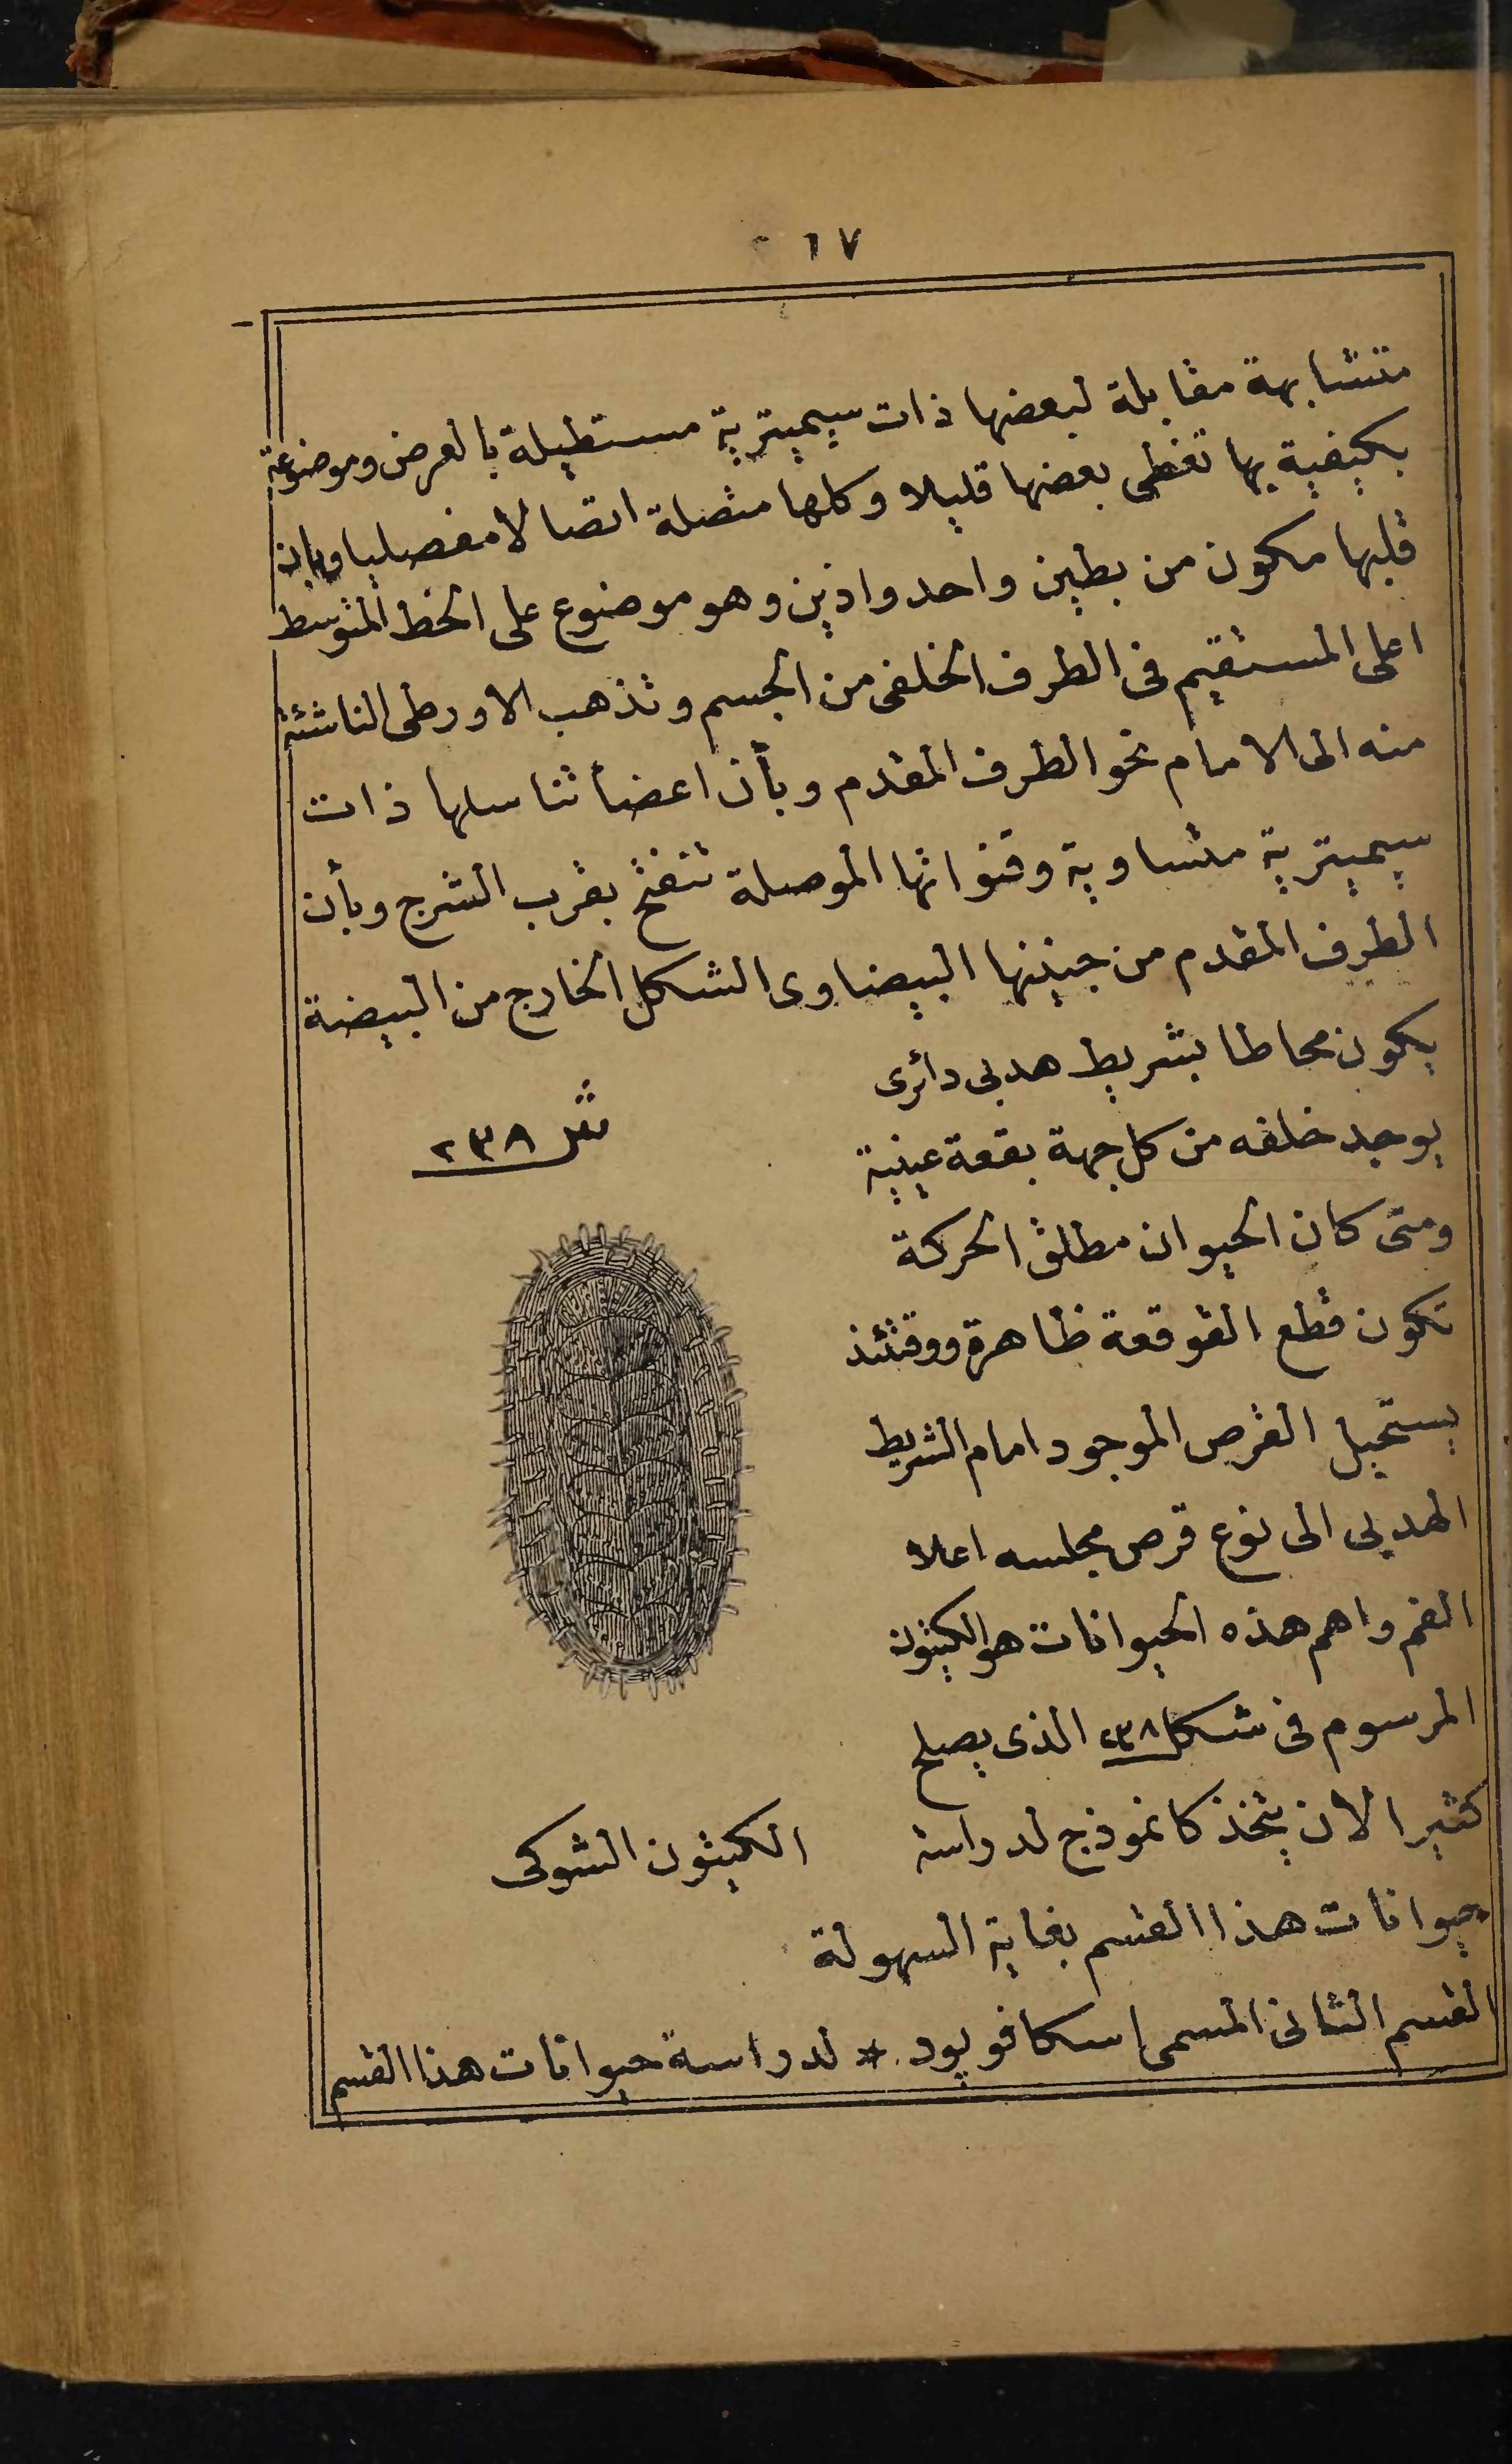 ٦٧
متشابهة مقابلة لبعضها ذات سيميترية مستطيلة بالعرض وموضوعة
بكيفية بها تغطى بعضها قليلا وكلها متصلة اتصالا مفصليا وبان
قلبها مكون من بطين واحد واذين وهو موضوع على الخط المتوسط
اعلى المستقيم فى الطرف الخلفى من الجسم وتذهب الاورطى الناشئة
منه الى الامام نحو الطرف المقدم وبأن اعضأ تناسلها ذات
سيميترية متساوية وقنواتها الموصلة تنفتح بقرب الشرج وبأن
الطرف المقدم من جنينها البيضاوى الشكل الخارج من البيضة
يكون محاطا بشريط هدبى دائرى
يوجد خلفه من كل جهة بقعة عينية
ومتى كان الحيوان مطلق الحركة
تكون قطع القوقعة ظاهرة ووقتئذ
يستحيل القرص الموجود امام الشريط
الهدبى الى نوع قرص مجلسه اعلا
الفم واهم هذه الحيوانات هو الكيثون
المرسوم فى شكل ٢٣٨ الذى يصلح
كثيرا لان يتخذ كانموذج لدراسة
حيوانات هذا القسم بغاية السهولة
شل ٢٣٨
الكيثون الشوكى
القسم الثانى المسمى اسكافوبود * لدراسة حيوانات هذا القسم